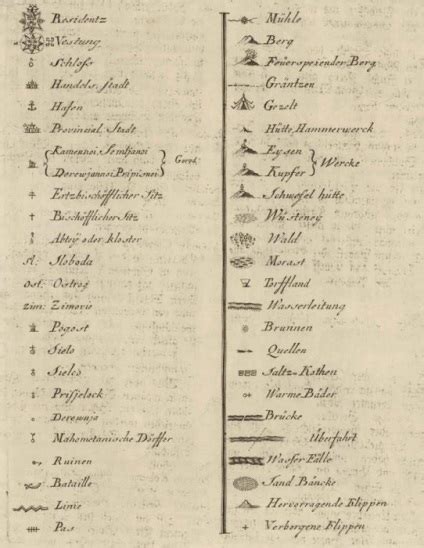 Residentz
Vestung
Schloss
Handels. Stadt
Hafen
Provincial. Stadt
Kamennoi. Semljanoi
Derewjannoi. Pripisnoi
Gorod.
Ertzbischöfflicher Sitz
Bischöfflicher Sitz
Abtey oder kloster
sl: Sloboda
ost: Ostrog
zim: Zimovie
Pogost
Sielo
Sielco
Prisjelock
Derewnja
Mahometanische Dörffer
Ruinen
Bataille
Linie
Pas
Mühle
Berg
Feuerspeiender Berg
Gräntzen
Gezelt
Hütte, Hammerwerck
Eysen
Kupfer
Wercke
Schwefel hütte
Wüsteney
Wald
Morast
Torffland
Wasserleitung
Brunnen
Quellen
Saltz-Kothen
Warme Bäder
Brücke
Überfahrt
Wasser Fälle
Sand Bäncke
Hervorragende Klippen
Verborgene Klippen